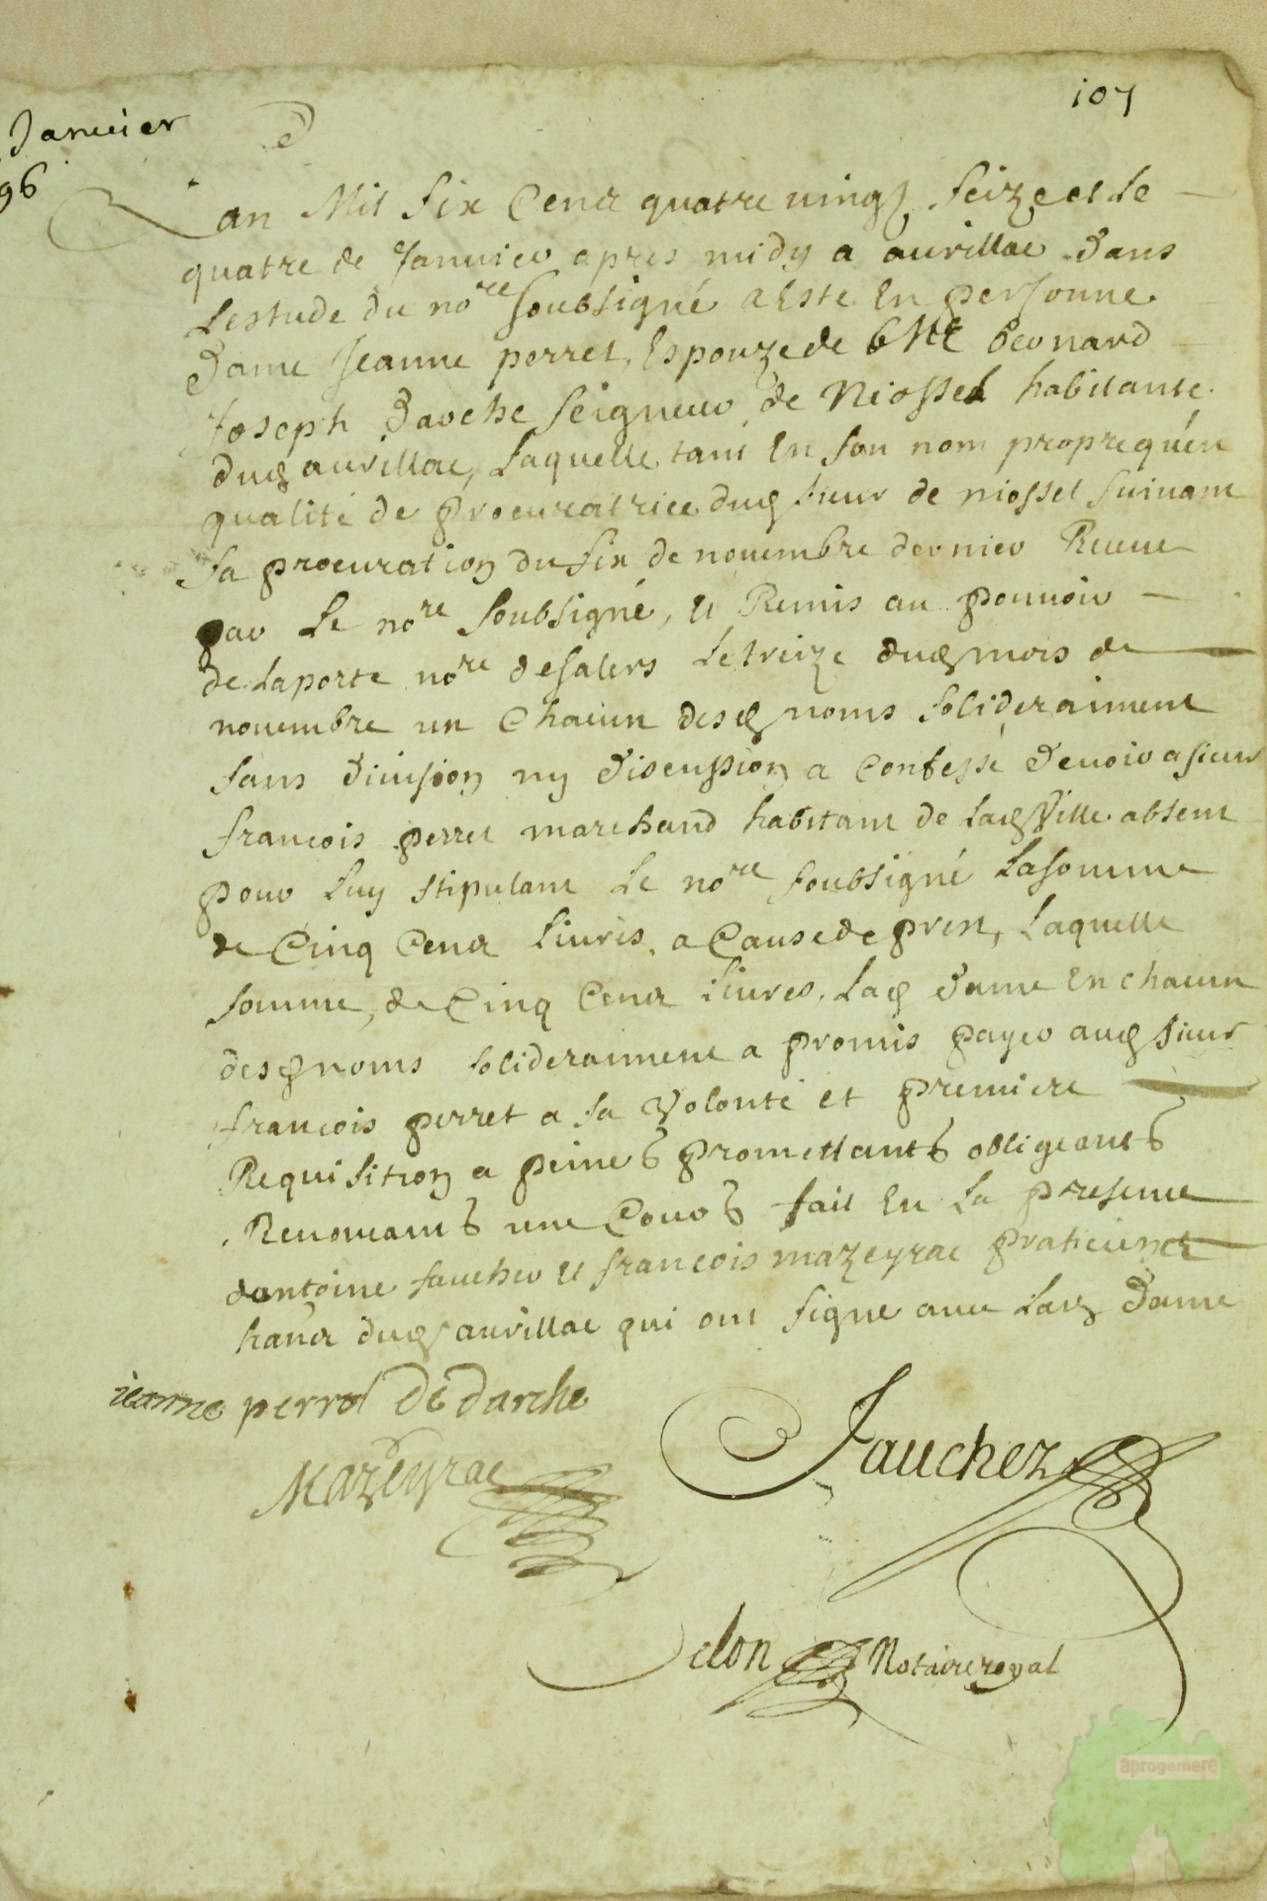 107
Janvier
96
Lan Mil six Cens quatre vingt seize et le
quatre de Janvier apres midy a aurillac Dans
Lestude du nore soubsigné a Esté En personne
Dame Jeanne perret Espouze de Bernard
Joseph Darche seigneur de Niossel habitante
dud aurillac, Laquelle tant En son nom propre qu'en
qualité de procuratrice dud sieur de niossel suivant
sa procuration du six de novembre dernier Receue
par Le nore soubsigné, et Remis au pouvoir
de Laporte nore de salers Le treize dud mois de
novembre en Chacun desd noms solideraiment
sans Division ny Discussion a Confessé Devoir a sieur
françois perret marchand habitant de lad Ville absent
pour Luy stipulant Le nore soubsigné La somme
de Cinq Cens Livres a Cause de prest, Laquelle
somme, de Cinq Cens Livres Lad Dame En chacun
desd noms solideraiment a promis payer aud sieur
françois perret a sa Volonté et premiere
Requisition a peine promettant obligeant
Renonceant fait En La presence
dantoine faucher et françois mazeyrac praticiens
dud aurillac qui ont signe avec Lad Dame
ieanne perret de darche
Mazeyrac
Fauchez
delon Notaire royal
aprogemere